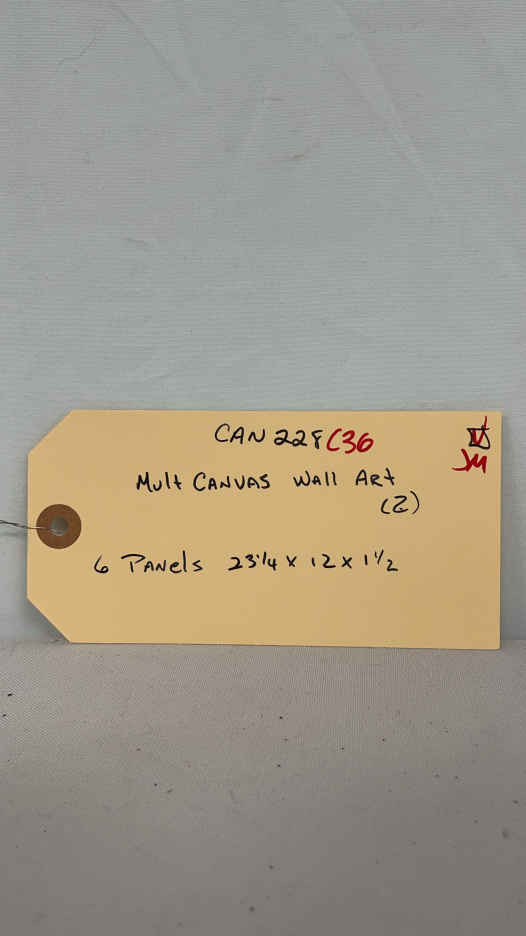 CAN 228 C36
Mult CANVAS Wall Art
(2)
6 Panels 23 1/4 x 12 x 1 1/2
JM